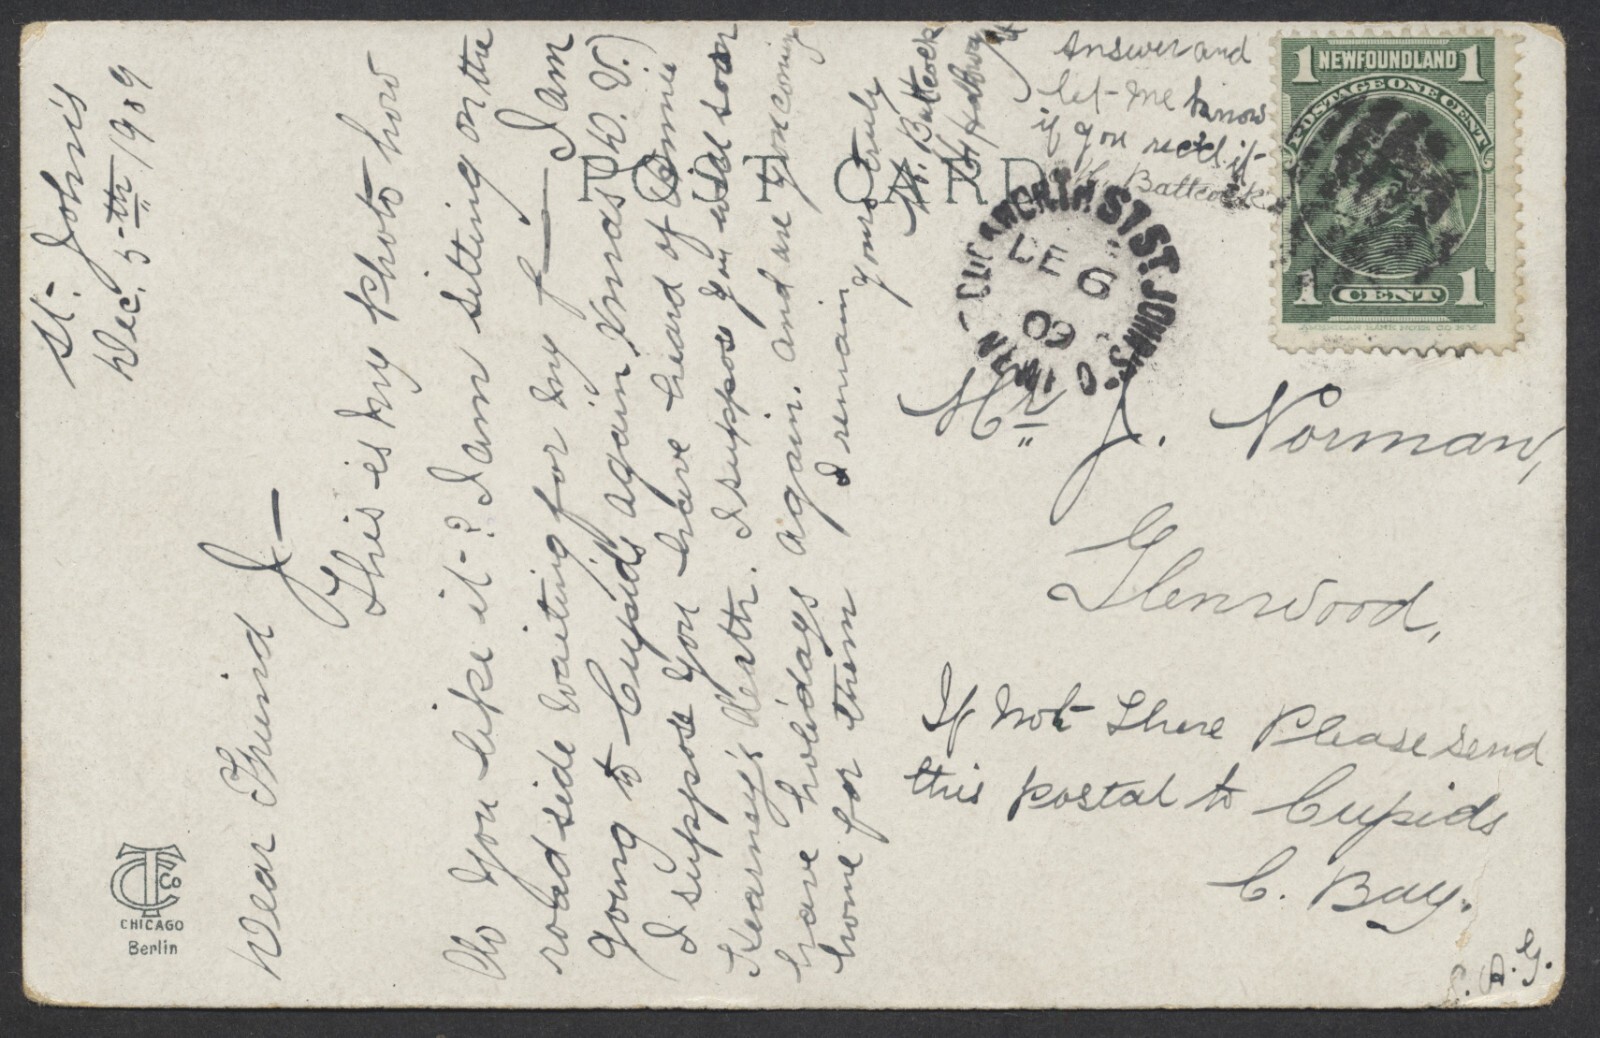 St. John's
Dec. 5th 1909
Dear Friend J—
This is my photo how
do you like it? I am sitting on the
road side waiting for my f— I am
going to Cupids again Xmas (D.V.)
I suppose you have heard of Annie
Kearney's death. I suppose you will soon
have holidays again. and are you coming
home for them
I remain
yours truly
W. Battcock
Answer and
let me know
if you rec'd it
W. Battcock
POST CARD
NEWFOUNDLAND
POSTAGE ONE CENT
1 CENT 1
AMERICAN BANK NOTE CO. N.Y.
ST. JOHN'S
DE 6
09
Mr J. Norman,
Glenwood,
If not there Please send
this postal to Cupids
C. Bay.
S.A.G.
CT Co
CHICAGO
Berlin